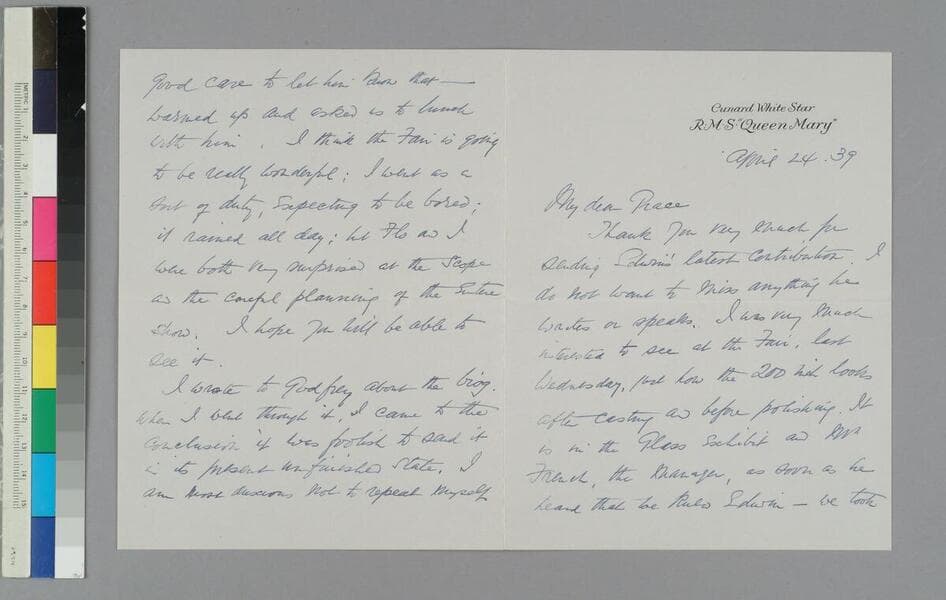 Cunard White Star
R·M·S·"Queen Mary"
April 24 · 39
My dear Grace
Thank you very much for
sending Edwin's latest contribution. I
do not want to miss anything he
writes or speaks. I was very much
interested to see at the Fair, last
Wednesday, just how the 200 inch looks
after casting and before polishing. It
is in the Glass Exhibit and Mr
French, the manager, as soon as he
heard that we knew Edwin — we took
good care to let him know that —
warmed up and asked us to lunch
with him. I think the Fair is going
to be really wonderful; I went as a
sort of duty, expecting to be bored;
it rained all day; but Flo and I
were both very surprised at the scope
and the careful planning of the entire
show. I hope you will be able to
see it.
I wrote to Godfrey about the biog.
When I went through it, I came to the
conclusion it was foolish to send it
in its present unfinished state. I
am most anxious not to repeat myself